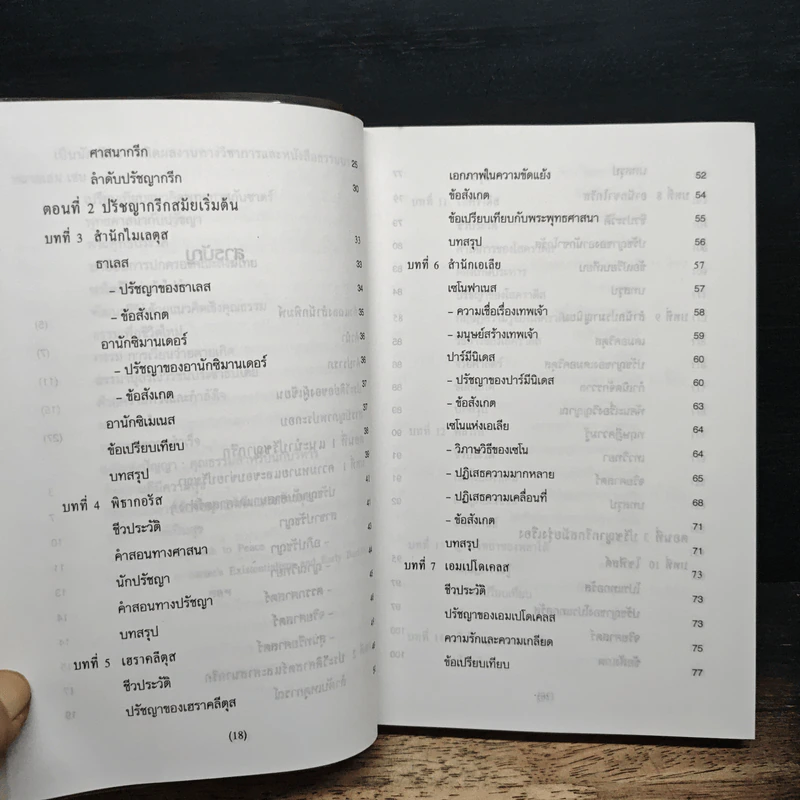 ศาสนากรีก 25
ลำดับปรัชญากรีก 30
ตอนที่ 2 ปรัชญากรีกสมัยเริ่มต้น
บทที่ 3 สำนักไมเลตุส 33
ธาเลส 33
– ปรัชญาของธาเลส 34
– ข้อสังเกต 35
อานักซิมานเดอร์ 36
– ปรัชญาของอานักซิมานเดอร์ 36
– ข้อสังเกต 37
อานักซิเมเนส 37
ข้อเปรียบเทียบ
บทสรุป
บทที่ 4 พิธากอรัส
ชีวประวัติ
คำสอนทางศาสนา
นักปรัชญา
คำสอนทางปรัชญา
บทสรุป
บทที่ 5 เฮราคลีตุส
ชีวประวัติ
ปรัชญาของเฮราคลีตุส
(18)
เอกภาพในความขัดแย้ง 52
ข้อสังเกต 54
ข้อเปรียบเทียบกับพระพุทธศาสนา 55
บทสรุป 56
บทที่ 6 สำนักเอเลีย 57
เซโนฟาเนส 57
– ความเชื่อเรื่องเทพเจ้า 58
– มนุษย์สร้างเทพเจ้า 59
ปาร์มีนิเดส 60
– ปรัชญาของปาร์มีนิเดส 60
– ข้อสังเกต 63
เซโนแห่งเอเลีย 64
– วิภาษวิธีของเซโน 64
– ปฏิเสธความมากหลาย 65
– ปฏิเสธความเคลื่อนที่ 68
– ข้อสังเกต 71
บทสรุป 71
บทที่ 7 เอมเปโดเคลส 73
ชีวประวัติ 73
ปรัชญาของเอมเปโดเคลส 73
ความรักและความเกลียด 75
ข้อเปรียบเทียบ 77